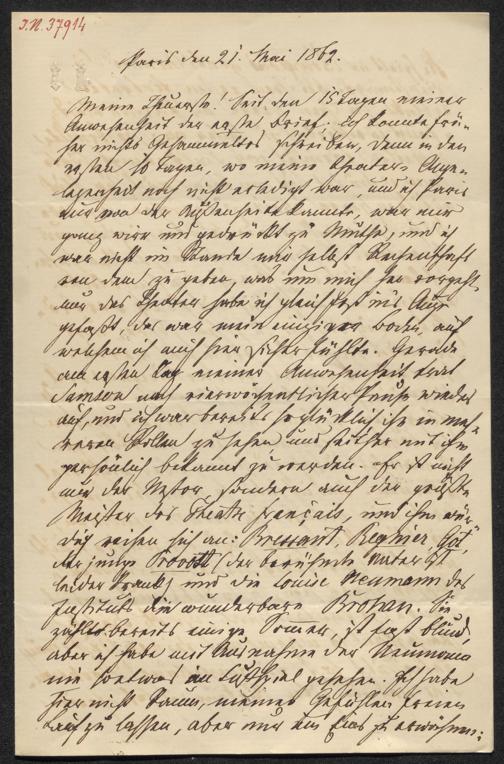 I.N. 37914
Paris den 21. Mai 1862.
Meine Theuerste! Seit den 15 Tagen meiner
Anwesenheit der erste Brief. Ich konnte frü-
her nichts Gesammeltes schreiben, denn in den
ersten 10 Tagen, wo meine Theater-Ange-
legenheit noch nicht erledigt war, und ich Paris
nur von der Außenseite kannte, war mir
ganz wirr und gedrückt zu Muthe, und ich
war nicht im Stande mir selbst Rechenschaft
von dem zu geben, was um mich her vorgeht.
Nur das Theater habe ich gleich fest in's Aug
gefaßt, das war mein einziger Boden, auf
welchem ich mich hier sicher fühlte. Gerade
am ersten Tag meiner Anwesenheit trat
Samson nach vierwöchentlicher Pause wieder
auf, und ich war bereits so glücklich ihn in meh-
reren Rollen zu sehen und seither mit ihm
persönlich bekannt zu werden. Er ist nicht
nur der Nestor, sondern auch der größte
Meister des Theatre français, und ihm wür-
dig reihen sich an: Bressant, Regnier, Got,
der junge Provost (der berühmte Vater ist
leider krank) und die Louise Neumann des
Instituts die wunderbare Brohan. Sie
zählt bereits einige Sommer, ist fast blind,
aber ich habe mit Ausnahme der Neumann
nie so etwas im Lustspiel gesehen. Ich habe
hier nicht Raum, meinen Gefühlen freien
Lauf zu lassen, aber nur um Eins zu erwähnen: